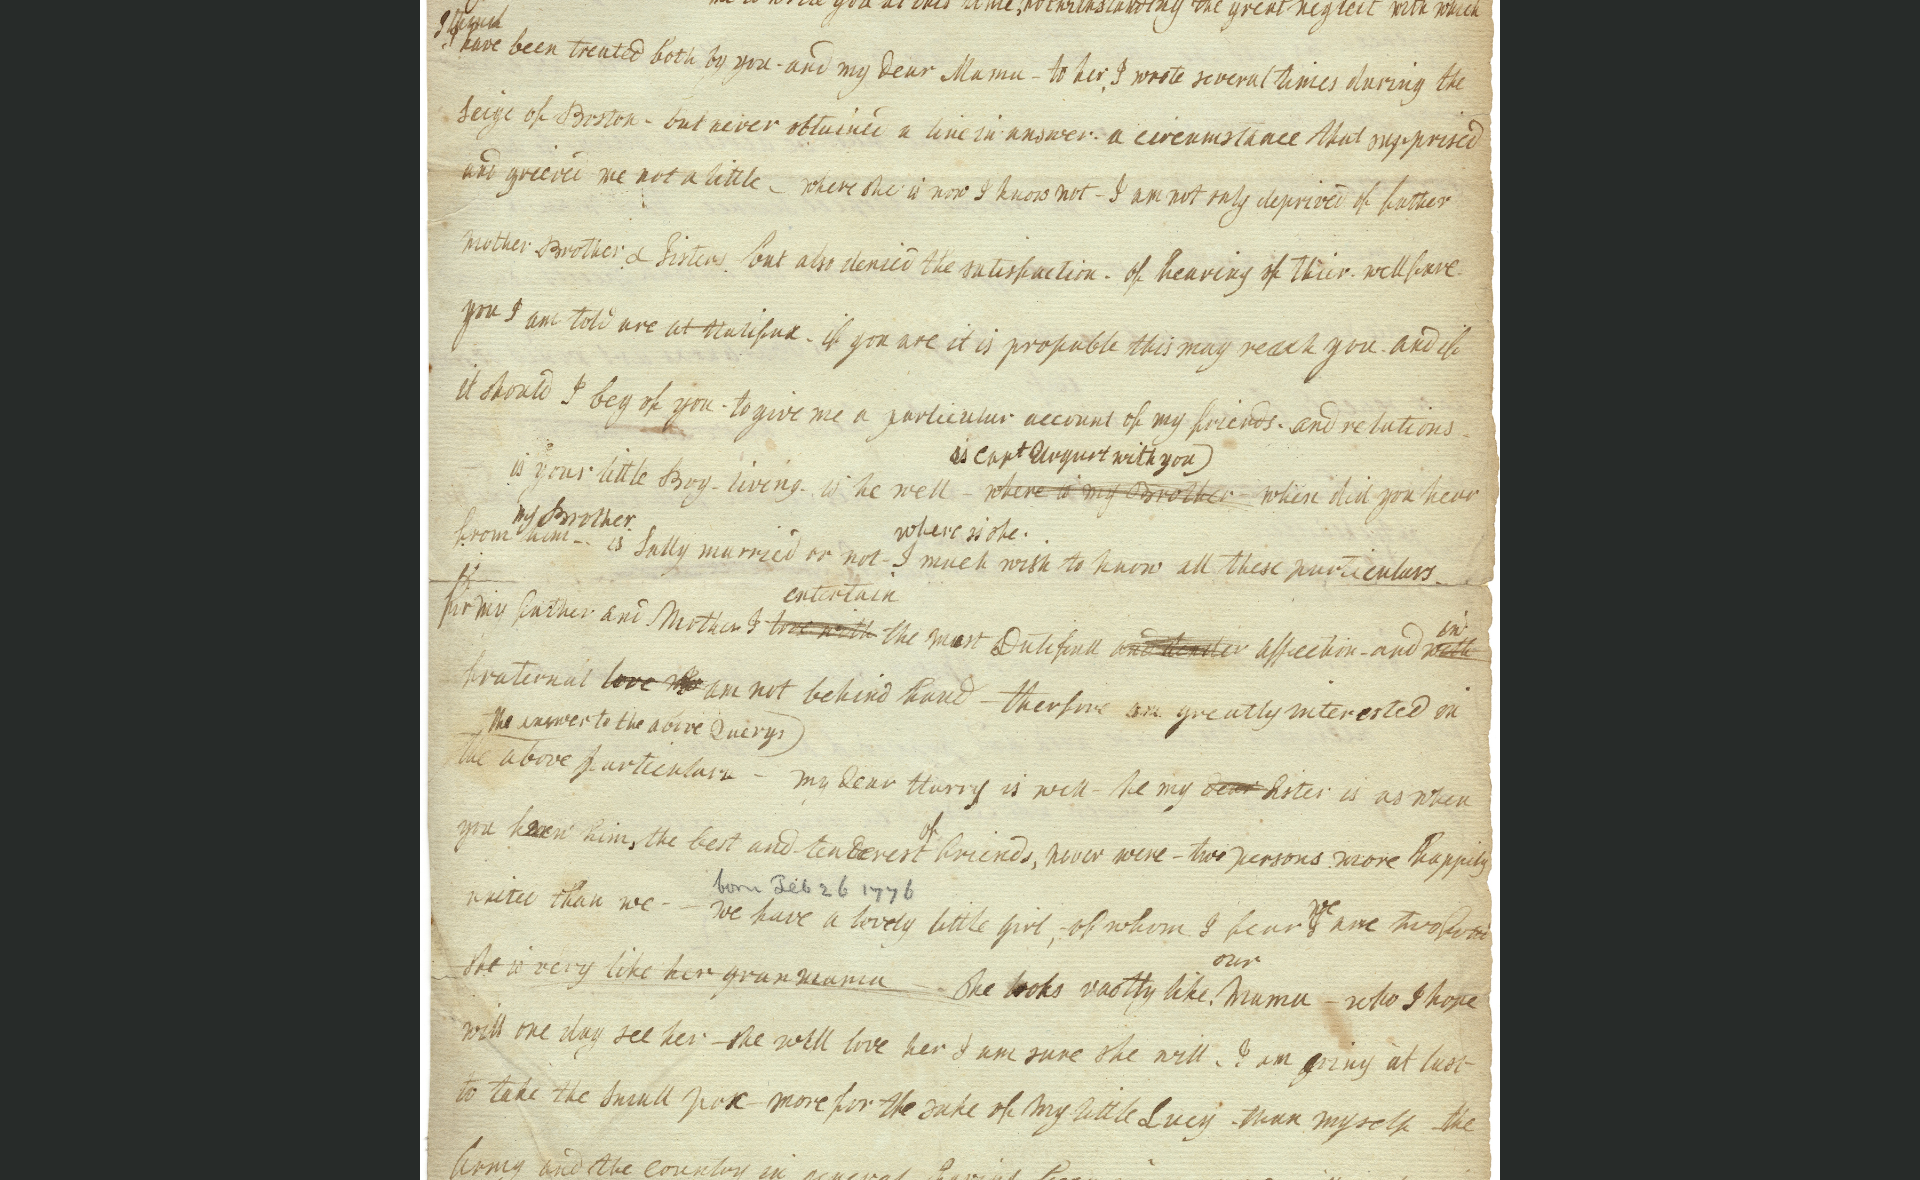 me to write you at this time, notwithstanding the great neglect with which
I
have been treated both by you - and my dear Mama - to her, I wrote several times during the
seige of Boston - but never obtained a line in answer - a circumstance that supprised
and grieved me not a little - where she is now I know not - I am not only deprived of father
mother Brother & Sisters but also denied the satisfaction - of hearing of their wellfare -
you I am told are at Halifax - if you are it is propable this may reach you - and if
it should I beg of you - to give me a particular account of my friends - and relations -
is Capt Urqurt with you)
is your little Boy - living - is he well - where is my Brother - when did you hear
my Brother where is she -
from him - is Sally married or not - I much wish to know all these particulars -
entertain
for my father and Mother I love with the most Dutifull and tender affection - and with
in
fraternal love am not behind hand - therfore am greatly interested in
the answer to the above Querys)
the above particulars - my dear Harry is well - he my dear Sister is as when
you knew him, the best and tenderest friends, never were - two persons more happily
of
united than we - - we have a lovely little girl, - of whom I fear I are two fond
born Feb 26 1776
we
she is very like her granmama - she looks vastly like Mama - who I hope
our
will one day see her - she will love her I am sure she will - I am going at last
to take the small pox - more for the sake of my little Lucy - than myself - the
Army and the country in general having been